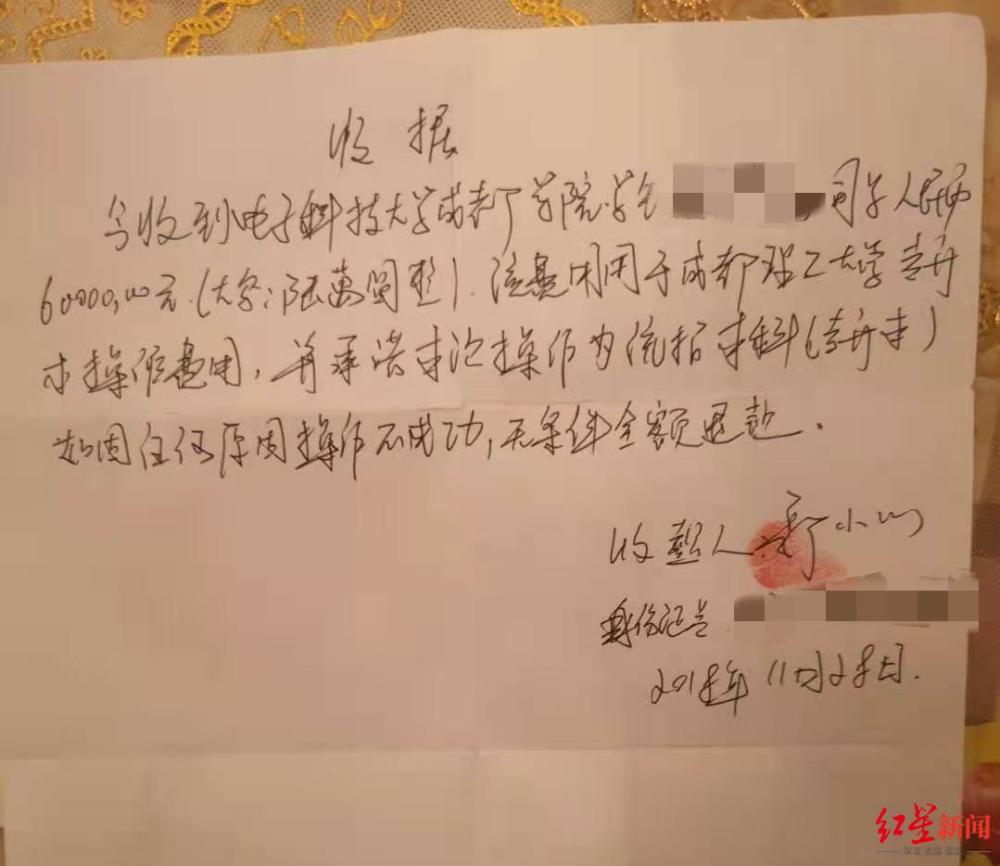 收据
今收到电子科技大学成都学院学生 同学人民币
60000.00元(大写:陆萬圆整).该费用用于成都理工大学专升
本操作费用,并承诺本次操作为统招本科(专升本)
如因任何原因操作不成功,无条件全额退款.
收款人 小
身份证号
2018年11月28日.
红星新闻
深度 态度 温度